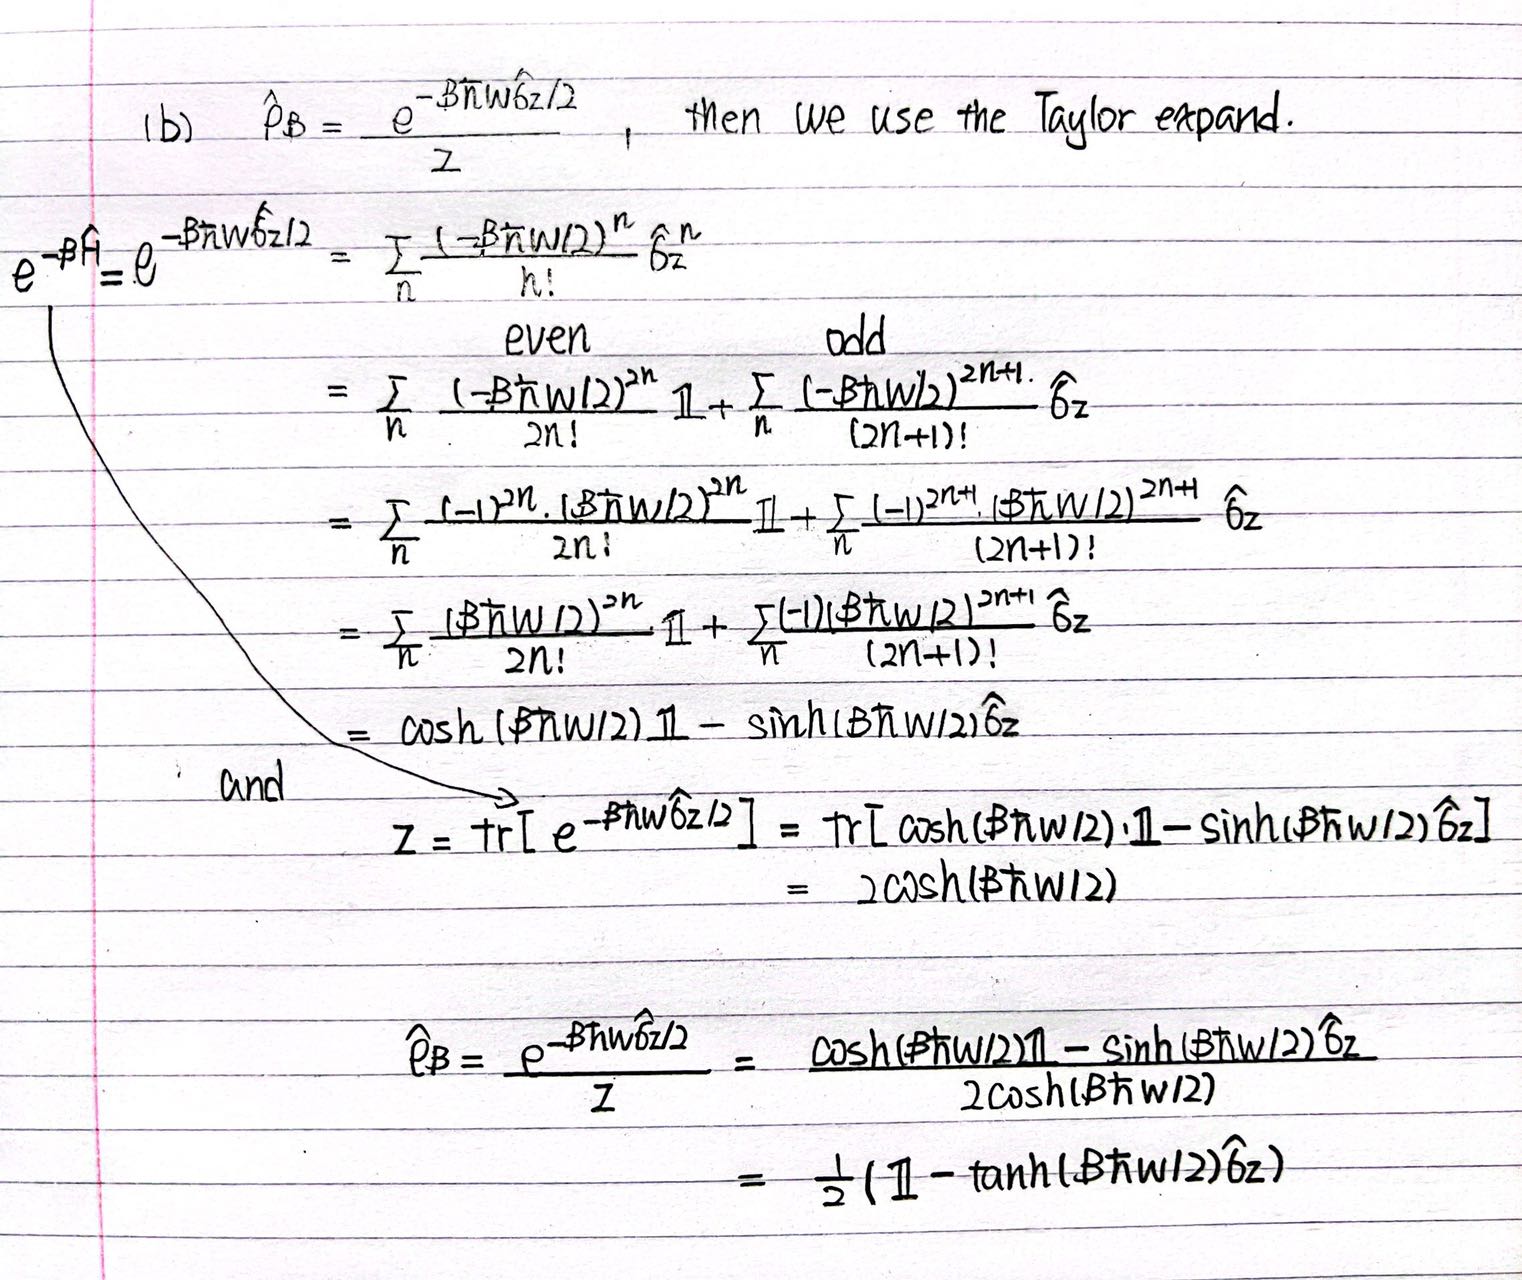 (b) ρ̂_B = e^{-βħωσ̂_z/2} / Z , then we use the Taylor expand.
e^{-βĤ} = e^{-βħωσ̂_z/2} = Σ_n (-βħω/2)^n / n! σ̂_z^n
even odd
= Σ_n (-βħω/2)^{2n} / 2n! 𝟙 + Σ_n (-βħω/2)^{2n+1} / (2n+1)! σ̂_z
= Σ_n (-1)^{2n}·(βħω/2)^{2n} / 2n! 𝟙 + Σ_n (-1)^{2n+1}·(βħω/2)^{2n+1} / (2n+1)! σ̂_z
= Σ_n (βħω/2)^{2n} / 2n! · 𝟙 + Σ_n (-1)(βħω/2)^{2n+1} / (2n+1)! σ̂_z
= cosh(βħω/2)𝟙 - sinh(βħω/2)σ̂_z
and
Z = tr[e^{-βħωσ̂_z/2}] = tr[cosh(βħω/2)·𝟙 - sinh(βħω/2)σ̂_z]
= 2cosh(βħω/2)
ρ̂_B = e^{-βħωσ̂_z/2} / Z = cosh(βħω/2)𝟙 - sinh(βħω/2)σ̂_z / 2cosh(βħω/2)
= 1/2 (𝟙 - tanh(βħω/2)σ̂_z)